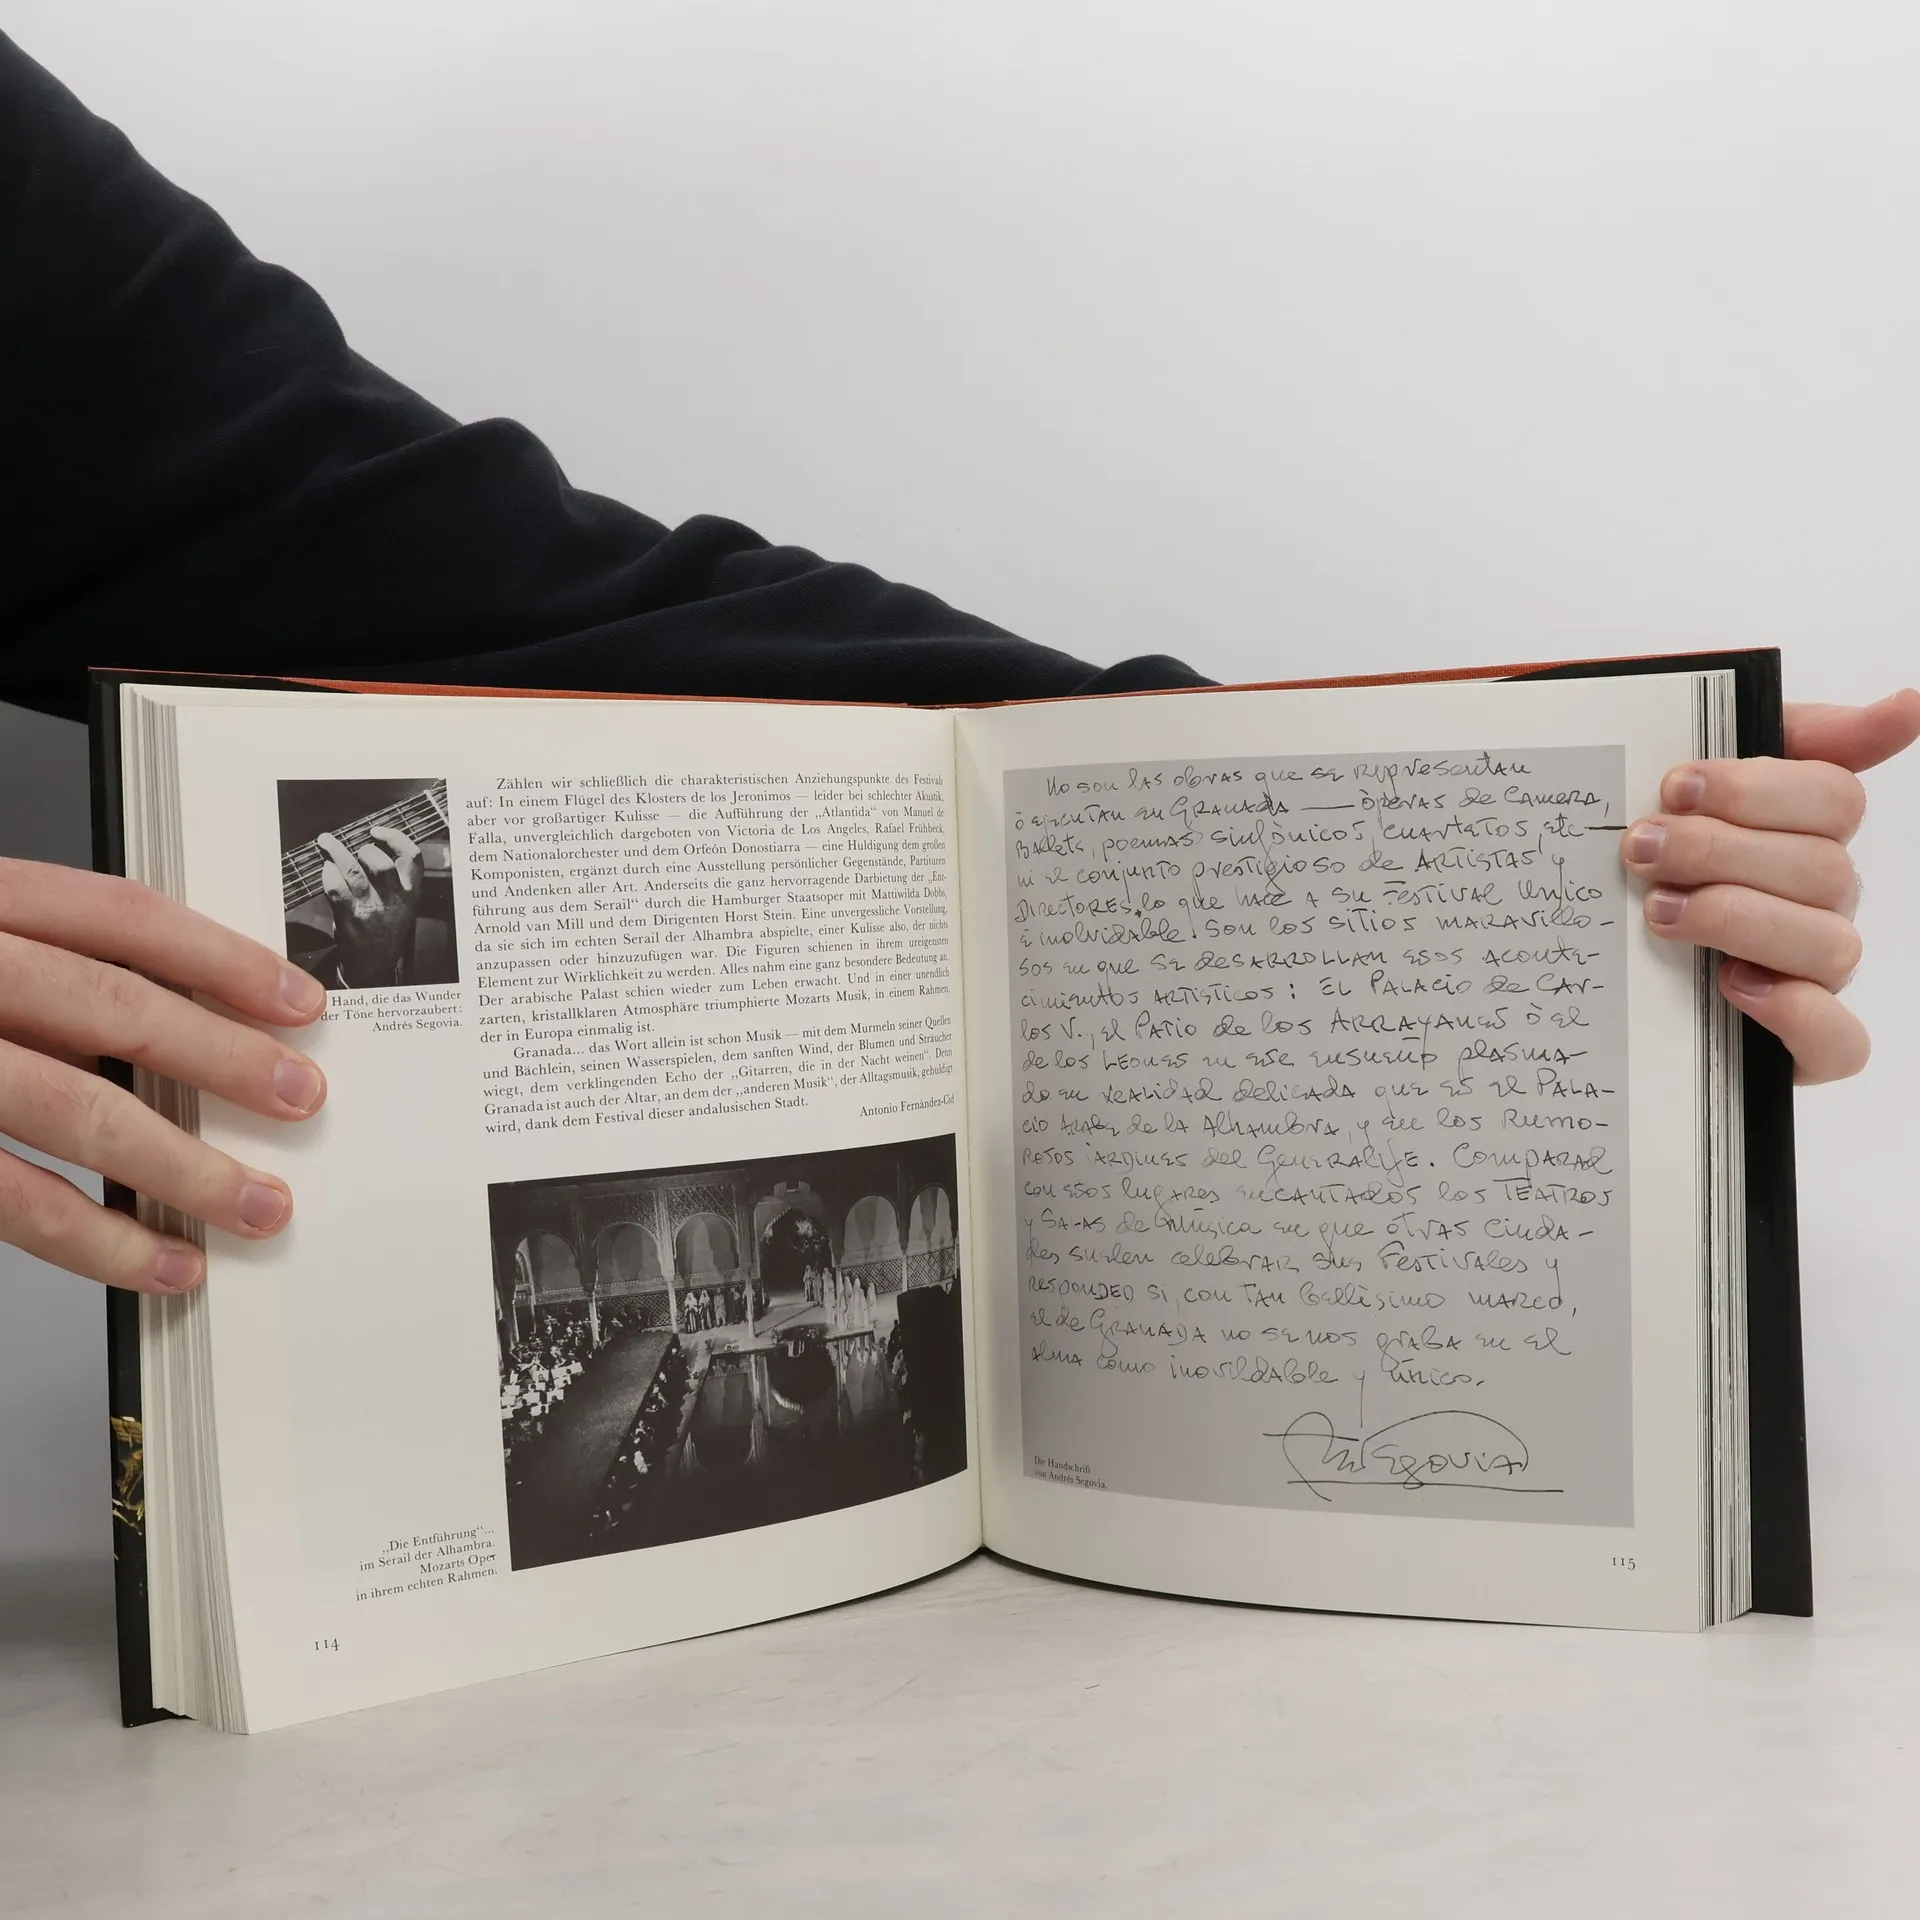 Zählen wir schließlich die charakteristischen Anziehungspunkte des Festivals
auf: In einem Flügel des Klosters de los Jeronimos — leider bei schlechter Akustik,
aber vor großartiger Kulisse — die Aufführung der „Atlantida“ von Manuel de
Falla, unvergleichlich dargeboten von Victoria de Los Angeles, Rafael Frühbeck,
dem Nationalorchester und dem Orfeón Donostiarra — eine Huldigung dem großen
Komponisten, ergänzt durch eine Ausstellung persönlicher Gegenstände, Partituren
und Andenken aller Art. Anderseits die ganz hervorragende Darbietung der „Ent-
führung aus dem Serail“ durch die Hamburger Staatsoper mit Mattiwilda Dobbs,
Arnold van Mill und dem Dirigenten Horst Stein. Eine unvergessliche Vorstellung,
da sie sich im echten Serail der Alhambra abspielte, einer Kulisse also, der nichts
anzupassen oder hinzuzufügen war. Die Figuren schienen in ihrem ureigensten
Element zur Wirklichkeit zu werden. Alles nahm eine ganz besondere Bedeutung an.
Der arabische Palast schien wieder zum Leben erwacht. Und in einer unendlich
zarten, kristallklaren Atmosphäre triumphierte Mozarts Musik, in einem Rahmen,
der in Europa einmalig ist.
Granada... das Wort allein ist schon Musik — mit dem Murmeln seiner Quellen
und Bächlein, seinen Wasserspielen, dem sanften Wind, der Blumen und Sträucher
wiegt, dem verklingenden Echo der „Gitarren, die in der Nacht weinen“. Denn
Granada ist auch der Altar, an dem der „anderen Musik“, der Alltagsmusik, gehuldigt
wird, dank dem Festival dieser andalusischen Stadt.
Antonio Fernández-Cid
Hand, die das Wunder
der Töne hervorzaubert:
Andrés Segovia.
„Die Entführung“...
im Serail der Alhambra.
Mozarts Oper
in ihrem echten Rahmen.
114
No son las obras que se representan
ò ejecutan en Granada — òperas de Camera,
Ballets, poemas sinfònicos, cuartetos, etc —
ni el conjunto prestigioso de Artistas y
Directores, lo que hace a su Festival Unico
è inolvidable. Son los sitios maravillo-
sos en que se desarrollan esos aconte-
cimientos artisticos: El Palacio de Car-
los V., el Patio de los Arrayanes ò el
de los Leones en este ensueño plasma-
do en realidad delicada que es el Pala-
cio Arabe de la Alhambra, y en los rumo-
rosos jardines del Generalife. Comparad
con esos lugares encantados los Teatros
y Salas de Música en que otras ciuda-
des suelen celebrar sus Festivales y
responded si, con tan bellìsimo marco,
el de Granada no se nos graba en el
alma como inovildable y único.
Segovia
Die Handschrift
von Andrés Segovia.
115